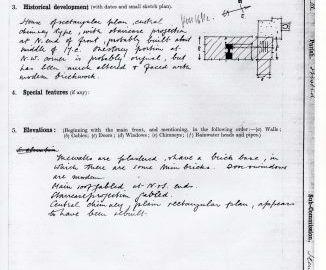 3. Historical development (with dates and small sketch plan).
House of rectangular plan, central
chimney type, with staircase projection
at N. end of front, probably built about
middle of 17.C. One storey portion at
N.W. corner is probably original, but
has been much altered & faced with
modern brickwork.
4. Special features (if any):
5. Elevations: (Beginning with the main front, and mentioning, in the following order:—(a) Walls;
(b) Gables; (c) Doors; (d) Windows; (e) Chimneys; (f) Rainwater heads and pipes.)
The walls are plastered, & have a brick base, in
which there are some thin bricks. Doors & windows
are modern.
Main roof gabled at N. & S. ends.
Staircase projection gabled.
Central chimney, plain rectangular plan, appears
to have been rebuilt.
Parish
Sub-Commission,